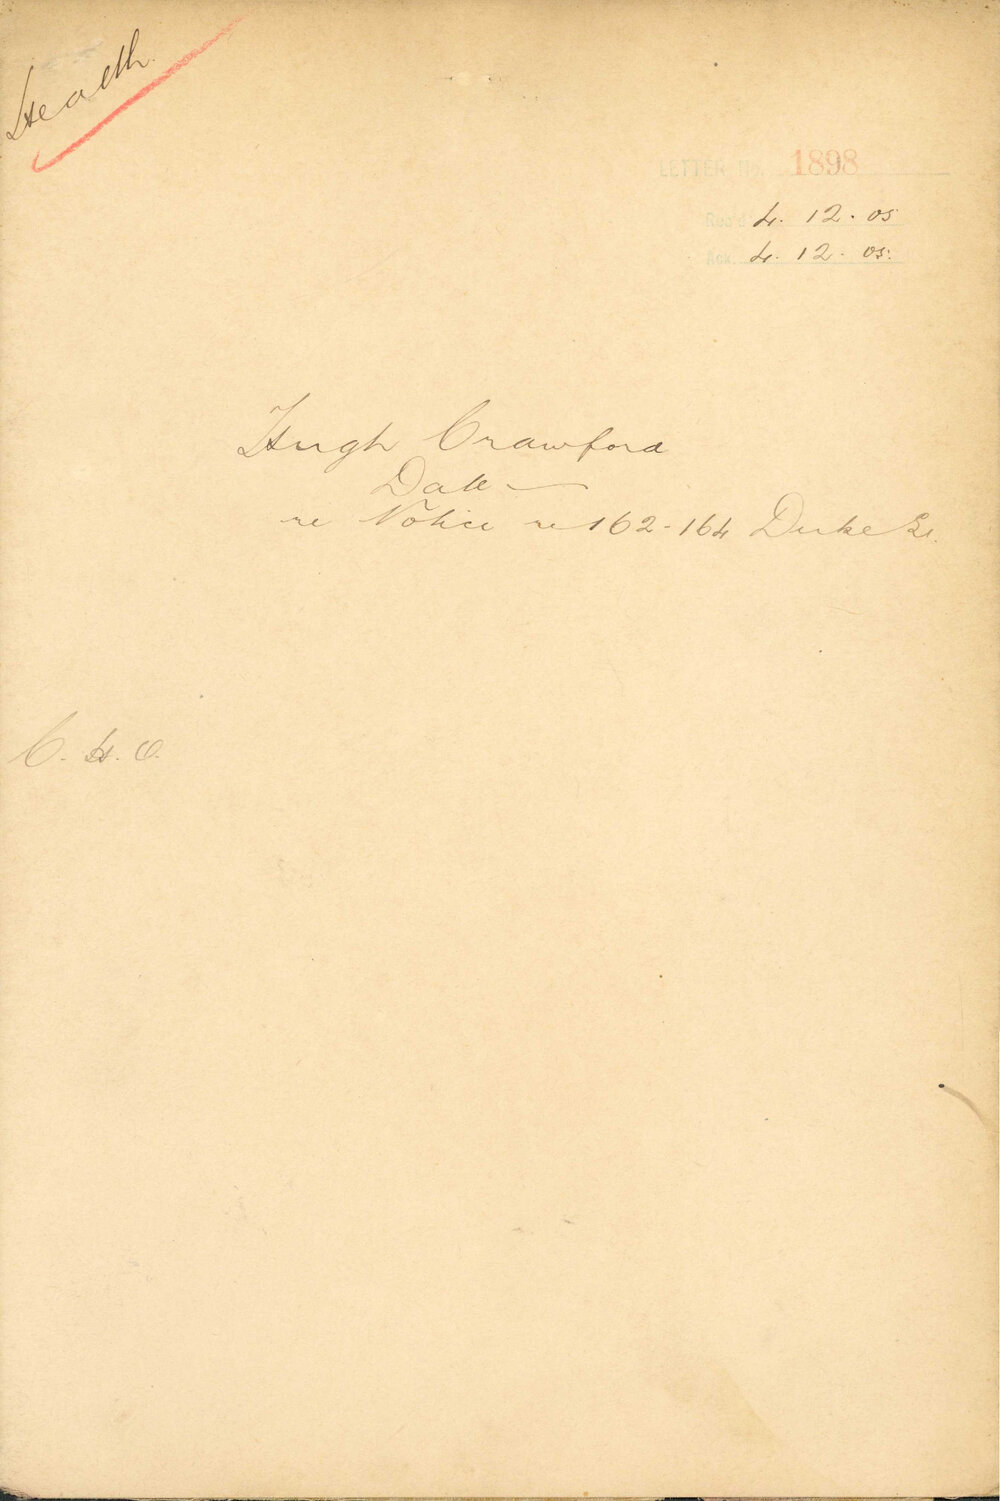 Health
LETTER No. 1898
Rec'd 4. 12. 05
Ack. 4. 12. 05.
Hugh Crawford
Date —
re Notice re 162-164 Duke St.
C. H. O.